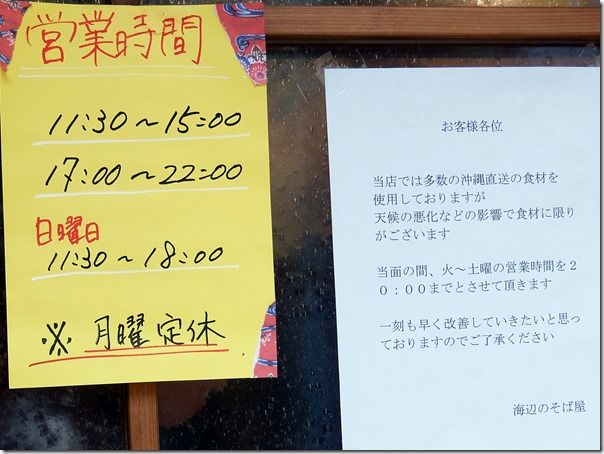 営業時間
11:30～15:00
17:00～22:00
日曜日
11:30～18:00
※ 月曜定休
お客様各位
当店では多数の沖縄直送の食材を
使用しておりますが
天候の悪化などの影響で食材に限り
がございます
当面の間、火～土曜の営業時間を２
０：００までとさせて頂きます
一刻も早く改善していきたいと思っ
ておりますのでご了承ください
海辺のそば屋